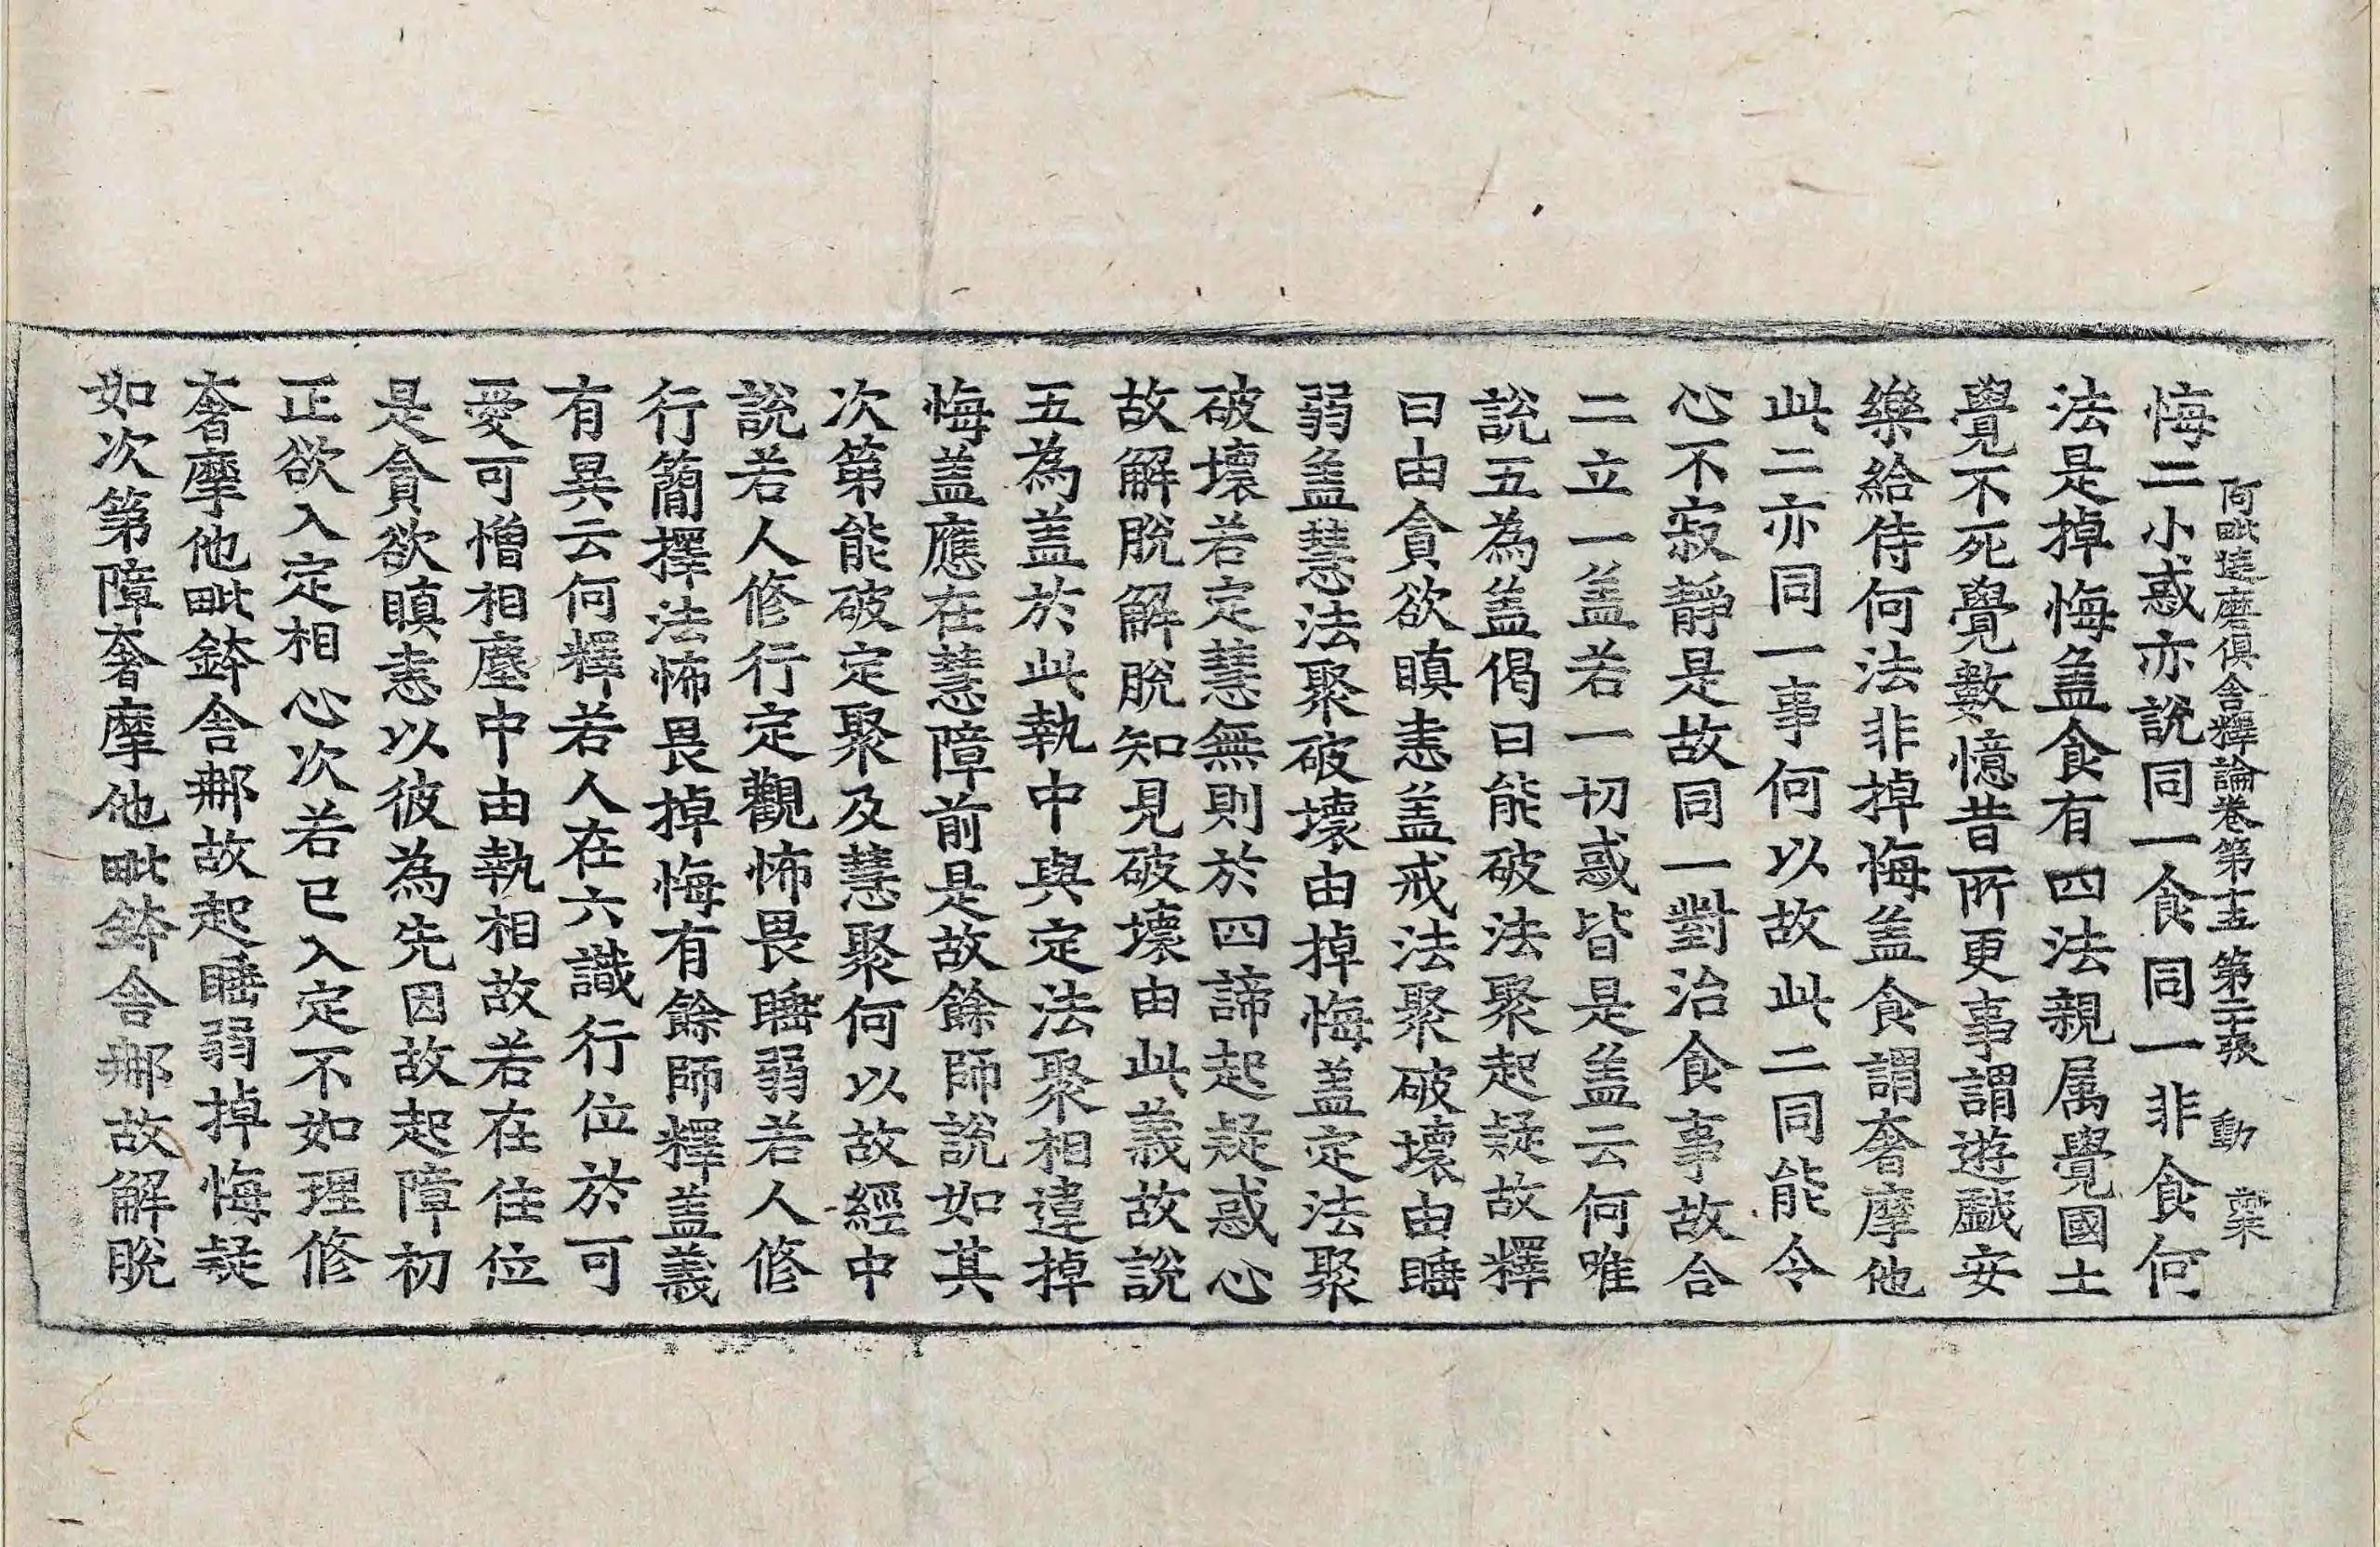 阿毗達磨俱舍釋論卷第十五 第二十張 動
悔二小惑亦說同一食同一非食何
法是掉悔盖食有四法親属覺國土
覺不死覺數憶昔所更事謂遊戱安
樂給侍何法非掉悔盖食謂奢摩他
此二亦同一事何以故此二同能令
心不寂靜是故同一對治食事故合
二立一盖若一切惑皆是盖云何唯
說五為盖偈曰能破法聚起疑故釋
曰由貪欲瞋恚盖戒法聚破壞由睡
弱盖慧法聚破壞由掉悔盖定法聚
破壞若定慧無則於四諦起疑惑心
故解脫解脫知見破壞由此義故說
五為盖於此執中與定法聚相違掉
悔盖應在慧障前是故餘師說如其
次第能破定聚及慧聚何以故經中
說若人修行定觀怖畏睡弱若人修
行簡擇法怖畏掉悔有餘師釋盖義
有異云何釋若人在六識行位於可
愛可憎相塵中由執相故若在住位
是貪欲瞋恚以彼為先因故起障初
正欲入定相心次若已入定不如理修
奢摩他毗鉢舍那故起睡弱掉悔疑
如次第障奢摩他毗鉢舍那故解脫